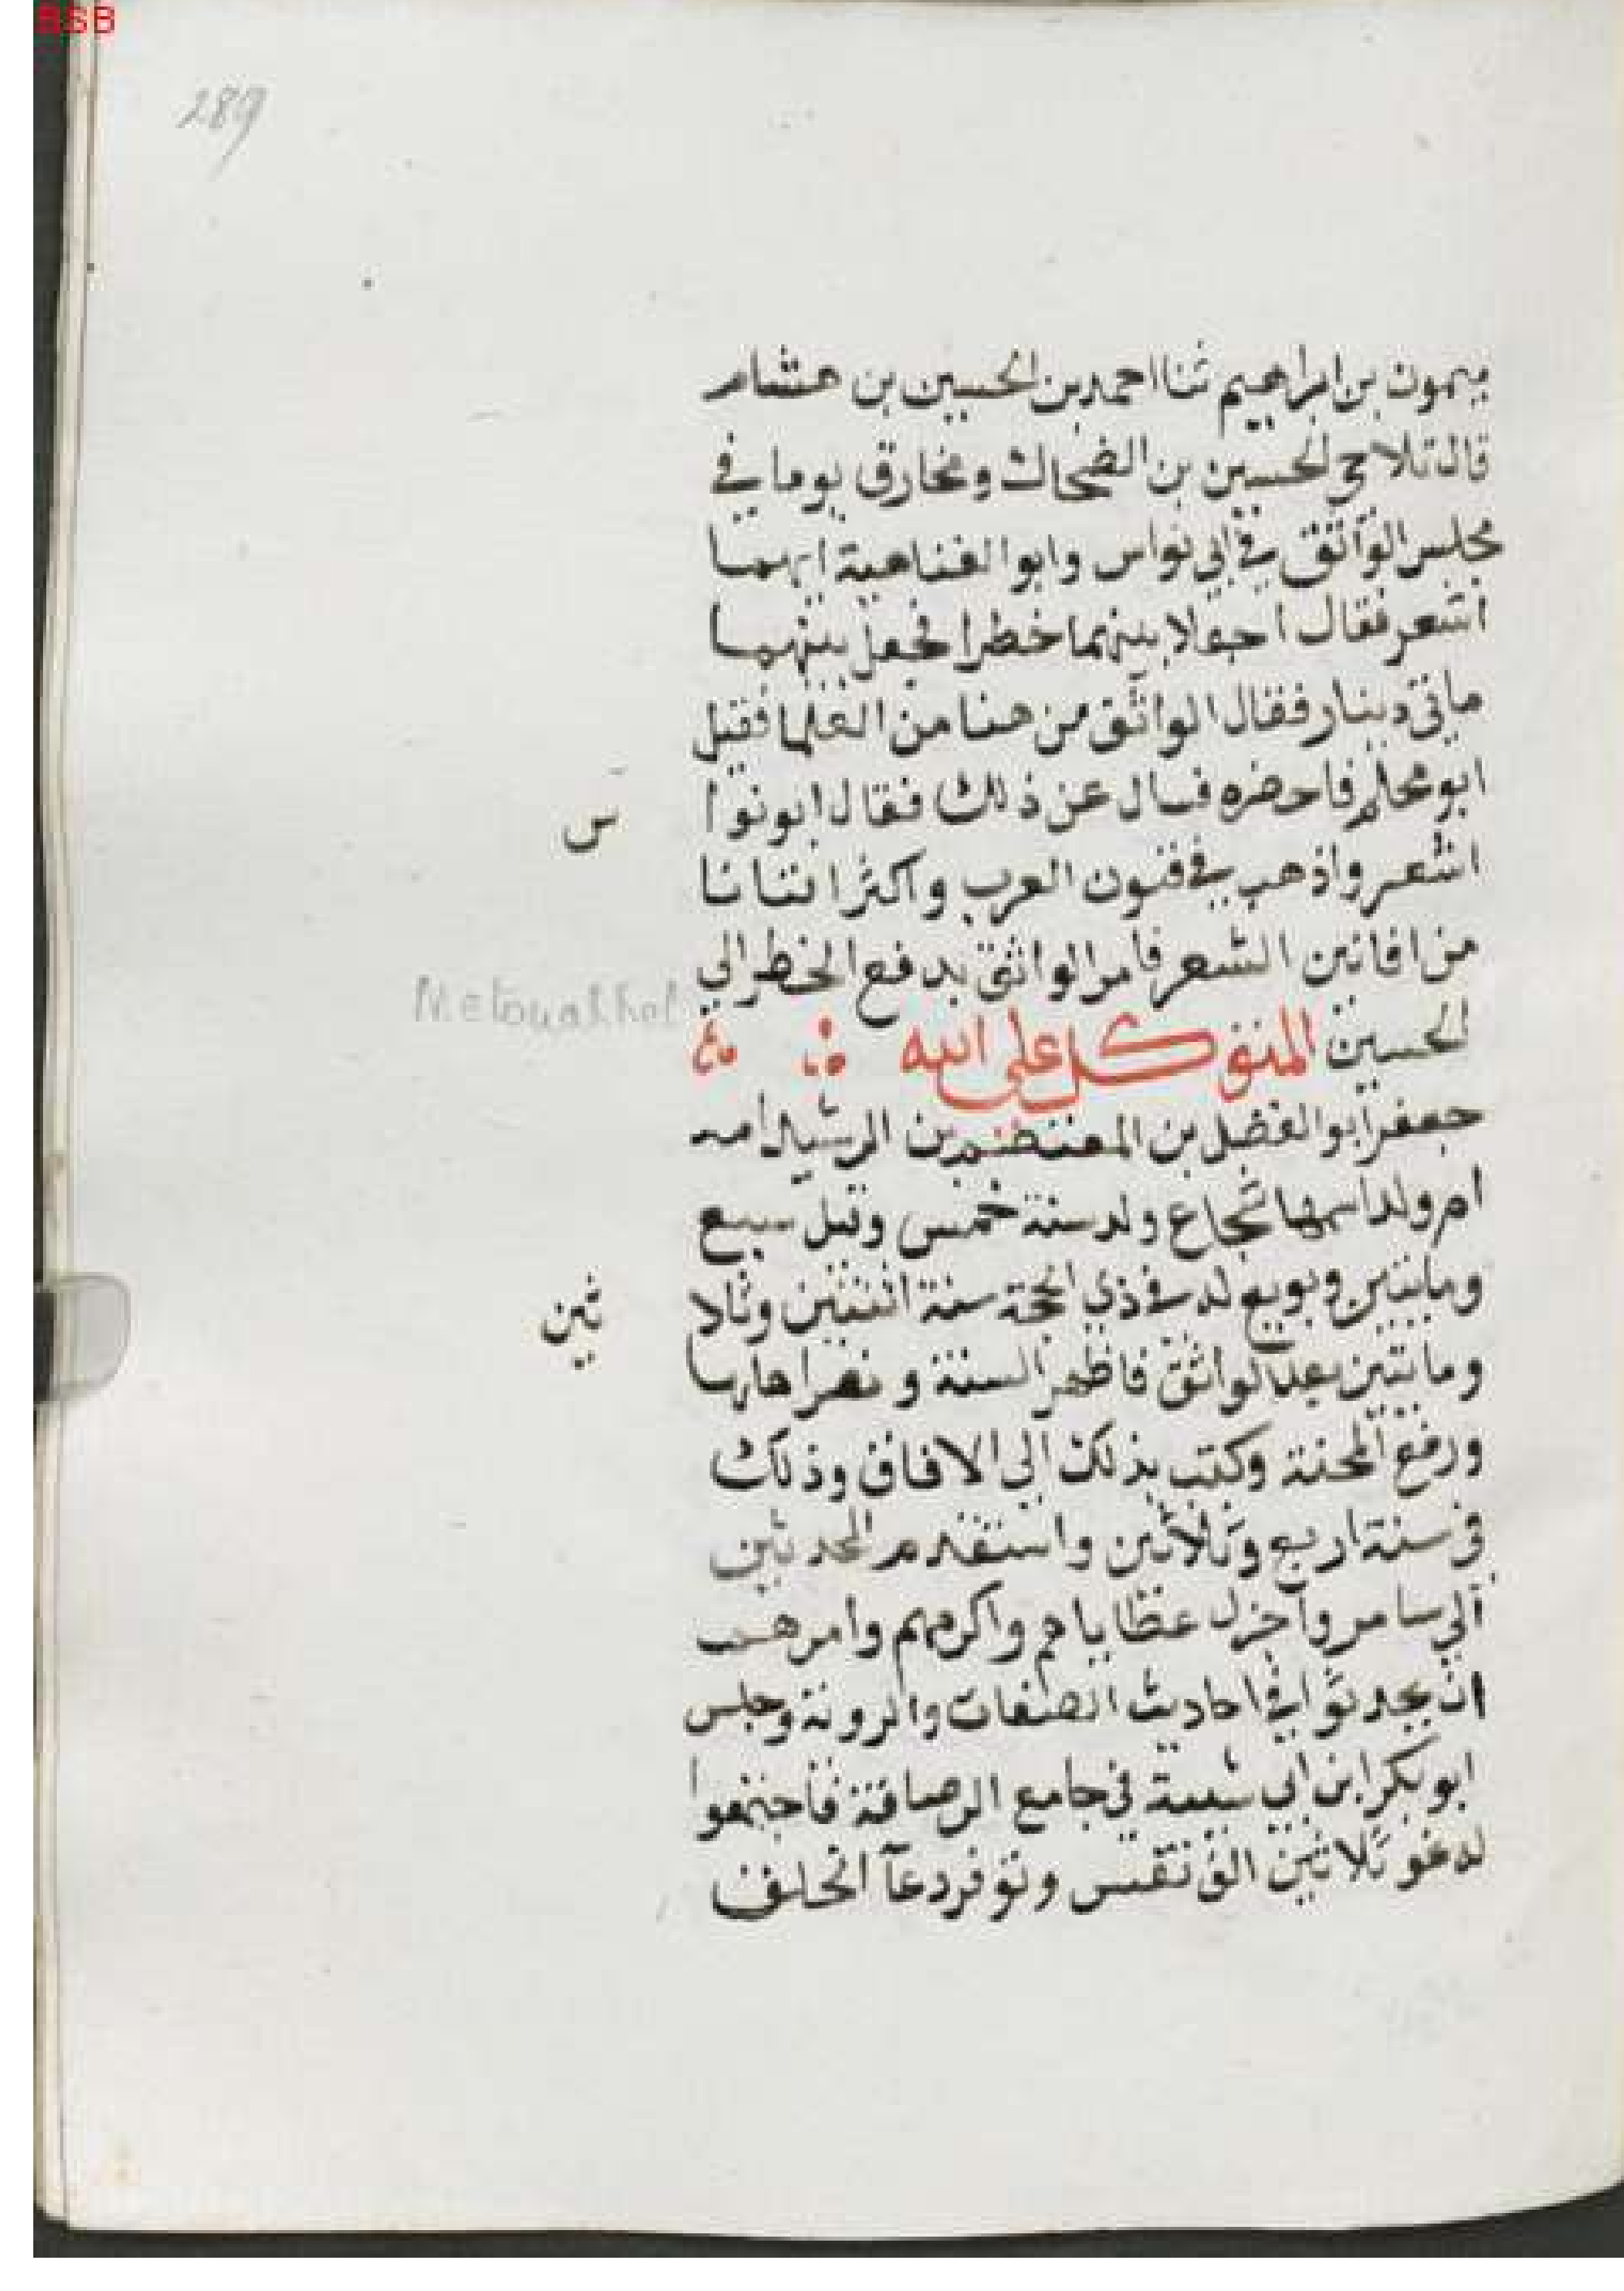 BSB
289
ميمون بن ابراهيم ثنا احمد بن الحسين بن هشام
قال تلاحي الحسين بن الضحاك ومخارق يوما في
مجلس الواثق في ابي نواس وابو العتاهية ايهما
اشعر فقال اجعلا بينهما خطرا فجعل بينهما
مائتي دينار فقال الواثق من هنا من العلما فقيل
ابو محلم فاحضره فسال عن ذلك فقال ابو نوا
س
اشعر واذهب في فنون العرب واكثر افتنانا
من افانين الشعر فامر الواثق بدفع الخطر الي
Metouakkel
الحسين المتوكل على الله
جعفر ابو الفضل بن المعتصم بن الرشيد امه
ام ولد اسمها شجاع ولد سنة خمس وقيل سبع
ومايتين وبويع له في ذي الحجة سنة اثنتين وثلا
ثين
ومايتين بعد الواثق فاظهر السنة ونصر اهلها
ورفع المحنة وكتب بذلك الى الافاق وذلك
في سنة اربع وثلاثين واستقدم المحدثين
الي سامر واجزل عطاياهم واكرمهم وامرهم
ان يحدثوا في احاديث الصفات والروية وجلس
ابو بكر ابن ابي شيبة في جامع الرصافة فاجتمعوا
له نحو ثلاثين الف نفس وتوفر دعآ الخلق